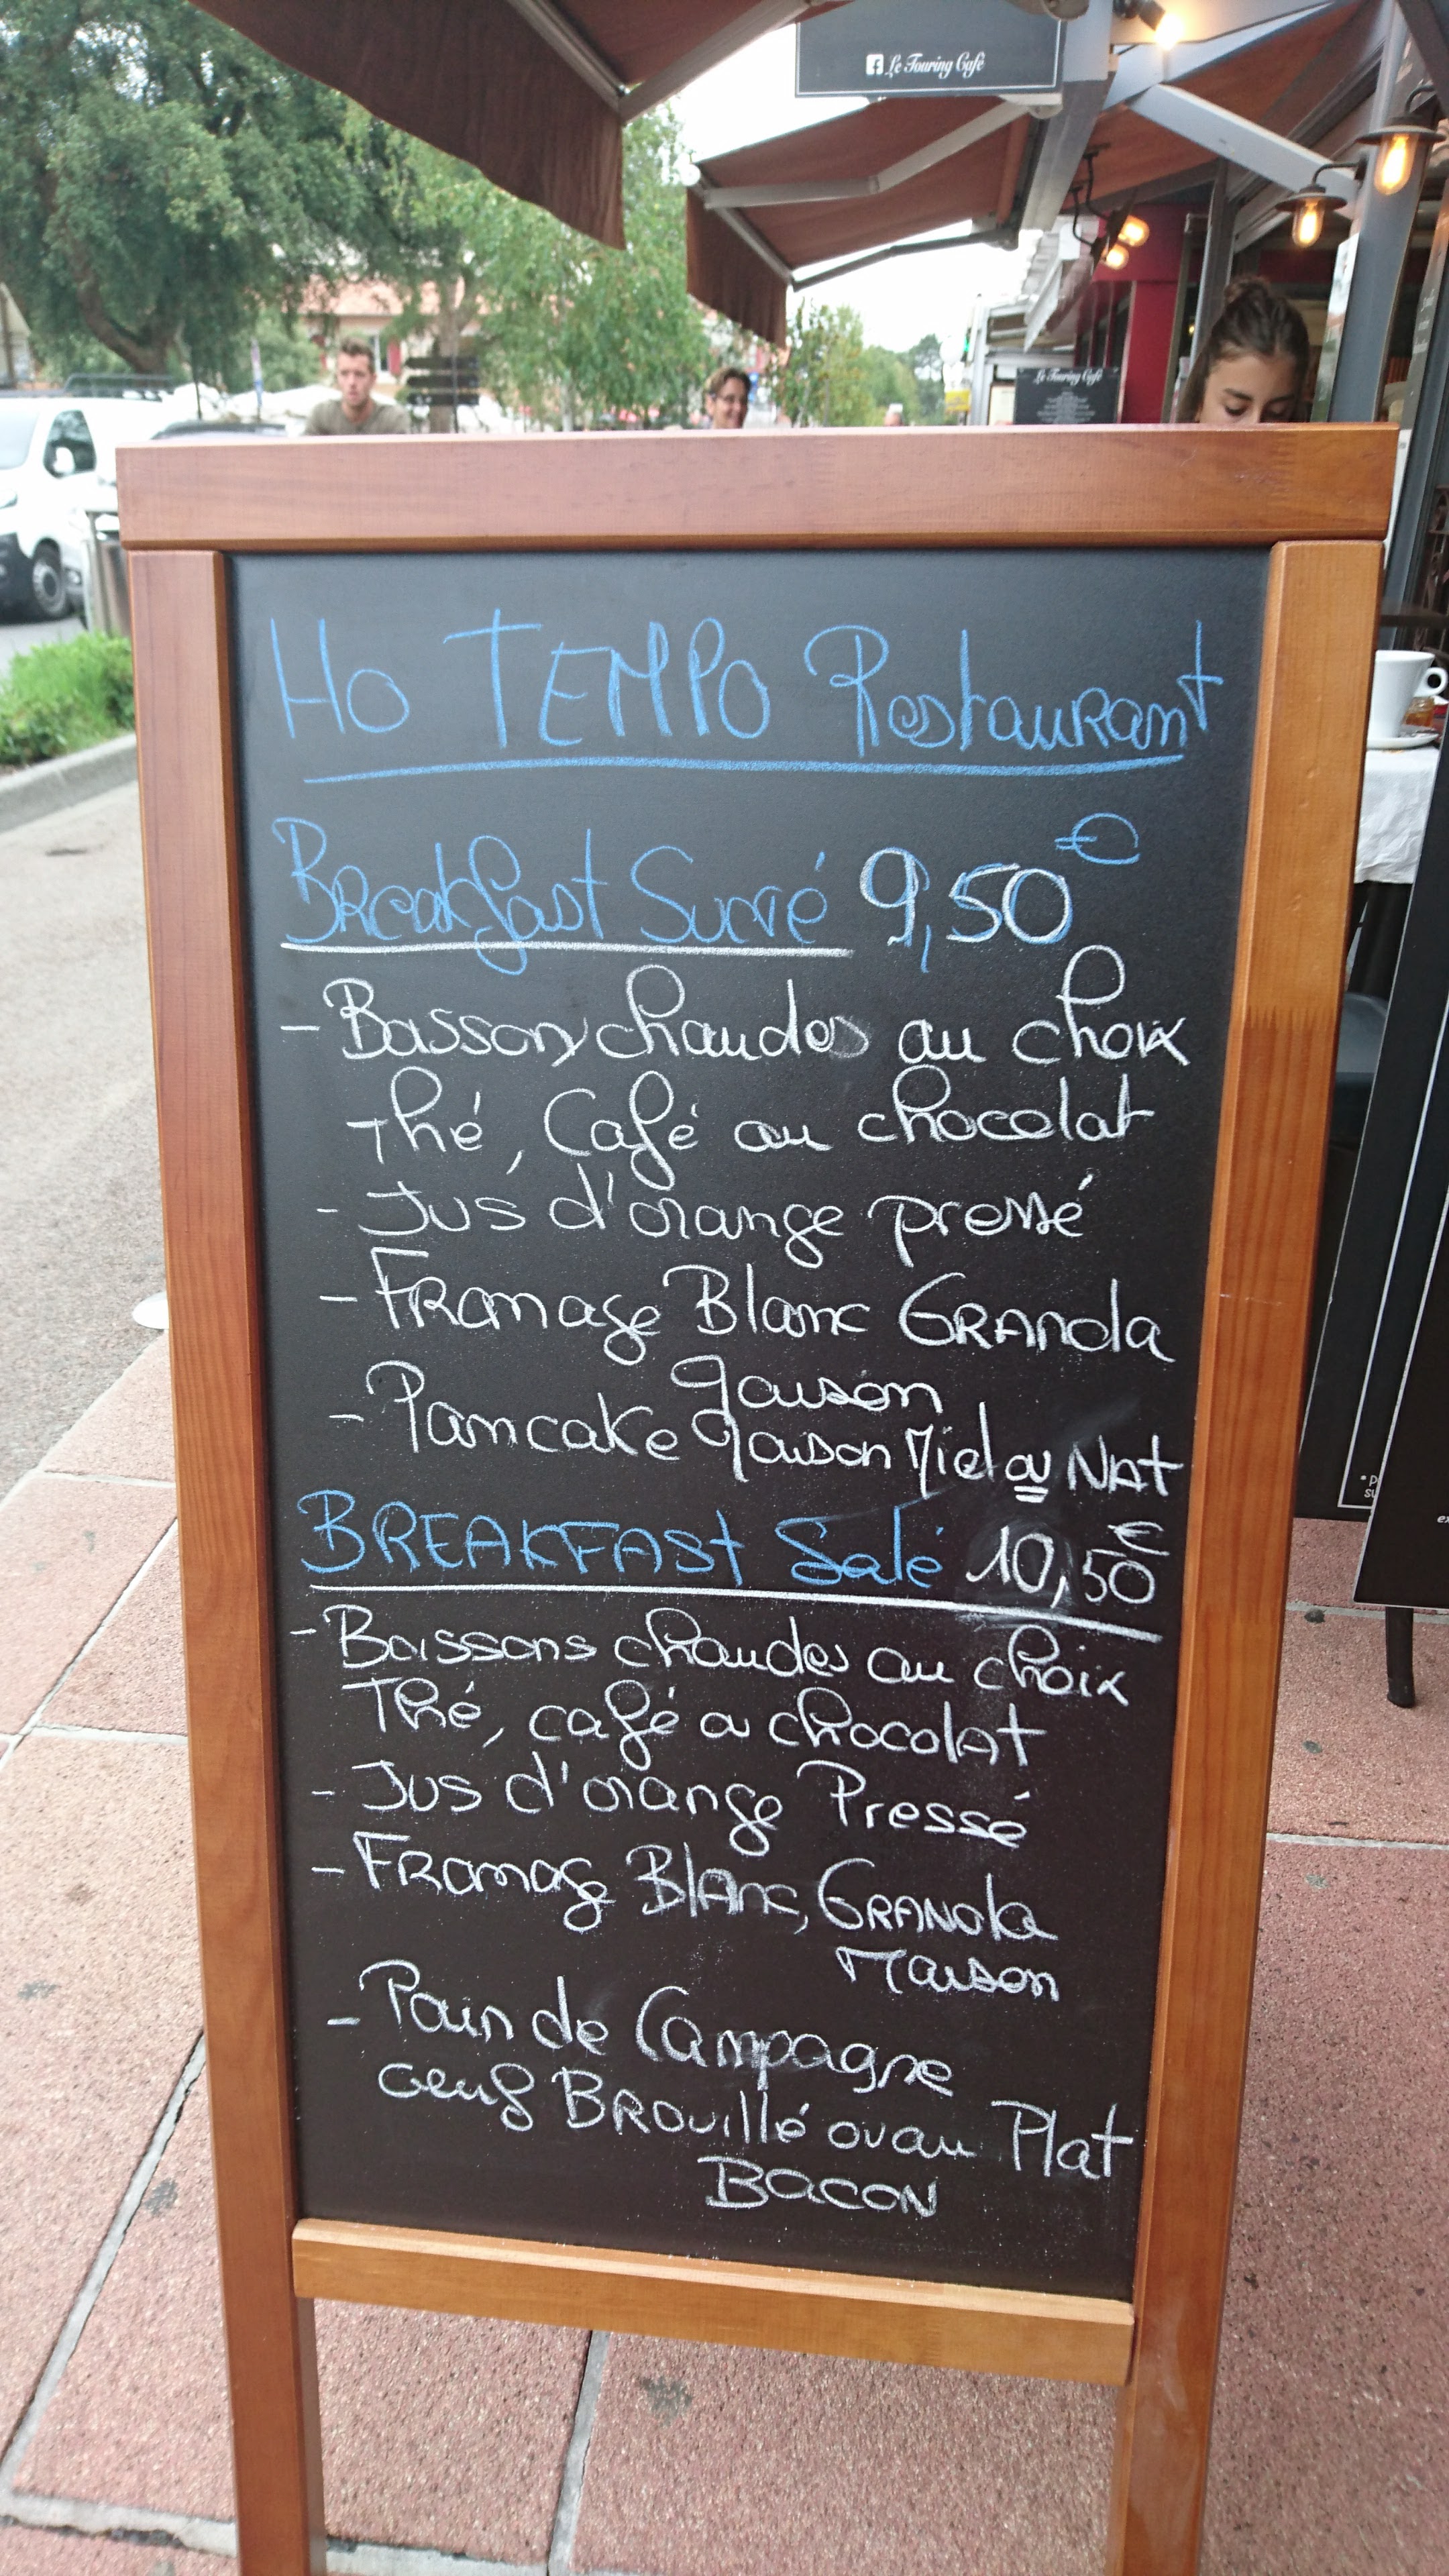 Le Touring Café
Le Touring Café
Ho TEMPO Restaurant
Breakfast Sucré 9,50€
- Boissons chaudes au choix
Thé, Café ou chocolat
- Jus d'orange pressé
- Fromage Blanc GRANOla
Maison
- Pancake Maison Miel ou NAT
BREAKFASt Salé 10,50€
- Boissons chaudes au choix
Thé, café o chocolAt
- Jus d'orange Pressé
- Fromage BlANc, GRANOla
Maison
- Pain de Campagne
oeuf BROuillé ou au Plat
BACON